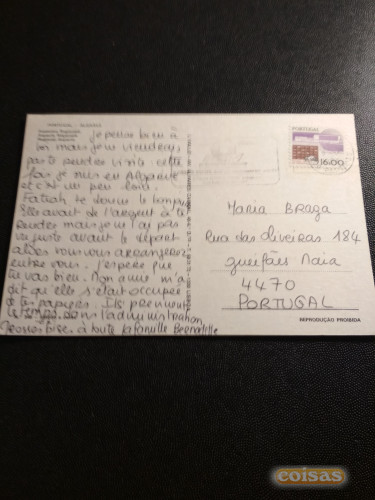 PORTUGAL
je pense bien à
toi mais je ne viendrai
pas te rendre visite cette
fois je suis en Algarve
et c'est un peu loin.
Fatiah te donne le bonjour
Elle avait de l'argent à te
rendre mais je ne l'ai pas
vu juste avant le départ
alors vous vous arrangerez
entre vous. J'espère que
tu vas bien. Mon amie m'a
dit qu'elle s'était occupée
de tes papiers. Ils prennent
le temps dans l'administration
Grosses bises à toute la famille Bernadette
PORTUGAL
16.00
Maria BRAGA
Rua das Oliveiras 184
Gueifães Maia
4470
PORTUGAL
REPRODUÇÃO PROIBIDA
coisas